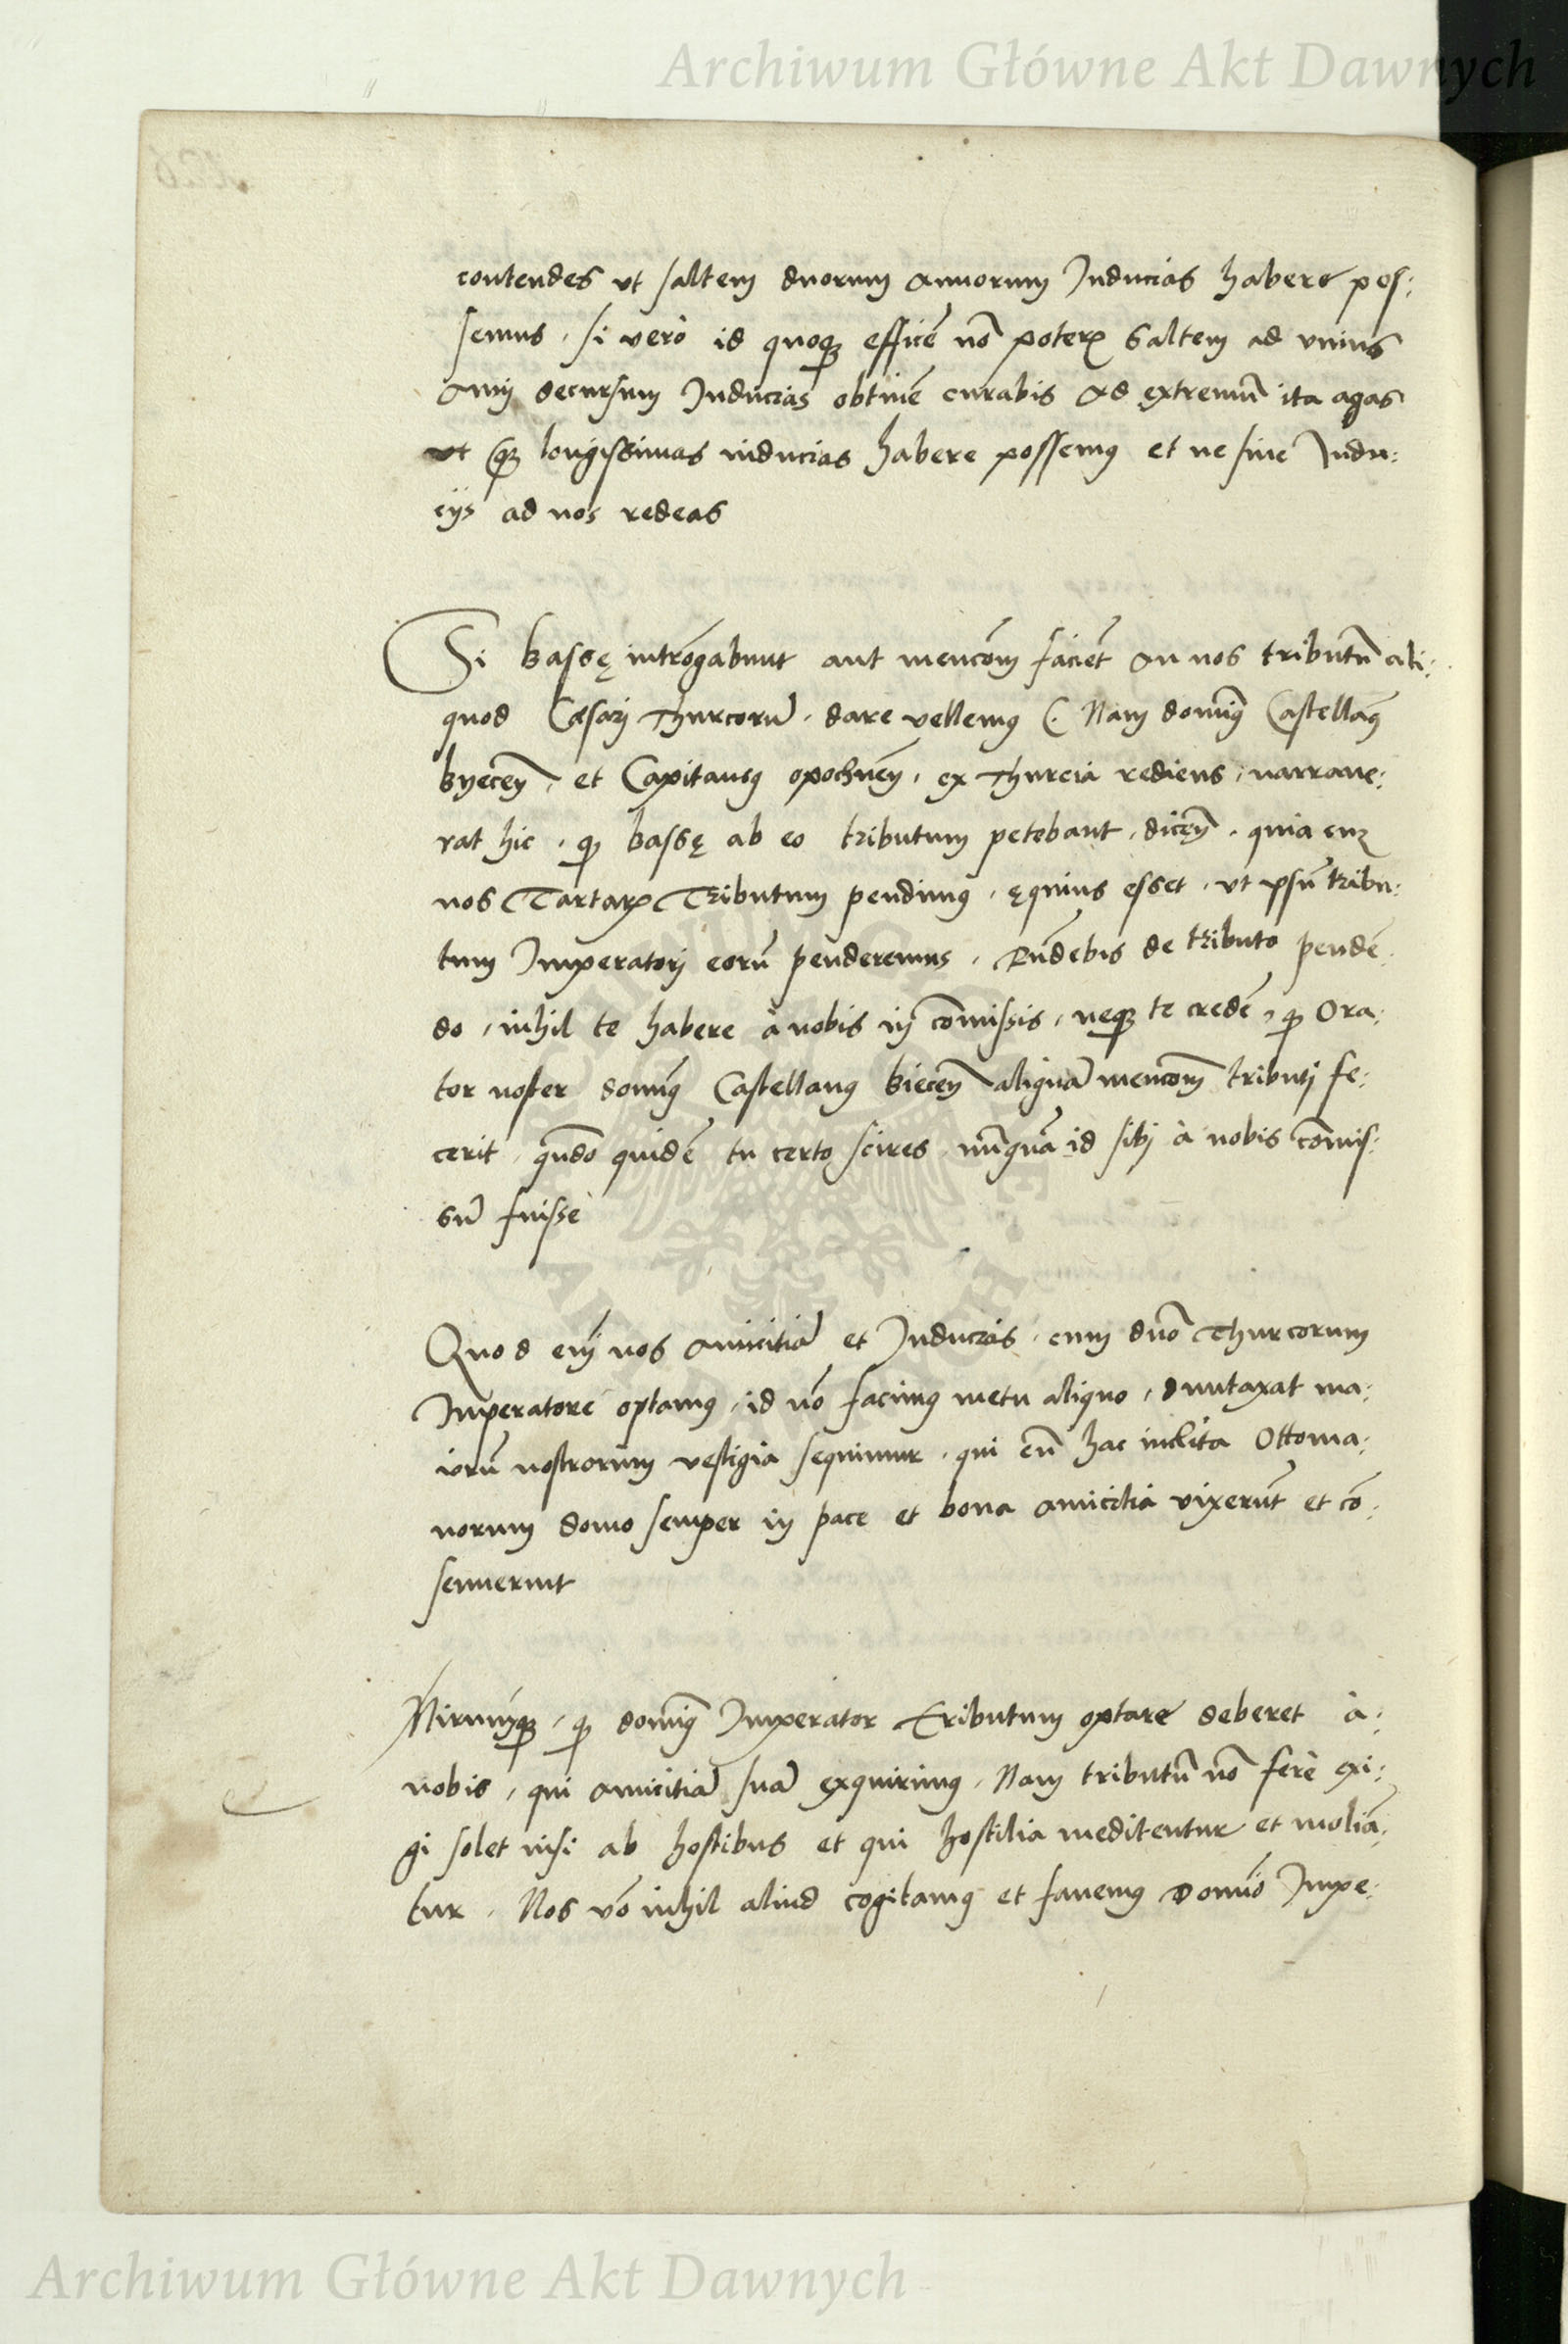 Archiwum Główne Akt Dawnych
contendes ut saltem duorum annorum Inducias habere pos:
semus. si verò id quoq; efficẽ nõ poterꝭ saltem ad vnius
annj decursum Inducias obtinẽ curabis Ad extremũ ita agas
ut longissimas inducias habere possemꝰ et ne sine Indu:
cijs ad nos redeas
Si bassę introgabunt aut mencõm faciẽt an nos tributũ ali:
quod Cæsarj Thurcorũ. dare vellemꝰ (. Nam domĩꝰ Castellaꝰ
byeceñ, et Capitaneꝰ opochneñ, ex Thurcia rediens, narraue:
rat hic, ꝙ bassę ab eo tributum petebant, diceñ. quia cum
nos Tartarꝭ Tributum pendimꝰ, ęquius esset, vt ipsũ tribu:
tum Imperatorj eorũ penderemus. Rñdebis de tributo pendẽ:
do, nihil te habere à nobis in cõmissis, neq; te credẽ, ꝙ Ora:
tor noster domĩꝰ Castellanꝰ bieceñ aliquã mencõm tributj fe:
cerit, quãdo quidẽ tu certo scires nũquã id sibj à nobis cõmis:
sũ fuisse
Quod eñ nos amicitiã et Inducias, cum dño Thurcorum
Imperatore optamꝰ, id nõ facimꝰ metu aliquo, Duntaxat ma:
iorũ nostrorum vestigia sequimur, qui cũ hac inclita Ottoma:
norum domo semper in pace et bona amicitia vixerũt et cõ:
senuerunt
Mirumq;, ꝙ domĩꝰ Imperator Tributum optare deberet à:
nobis, qui amicitiã suã exquirimꝰ. Nam tributũ nõ ferè exi:
gi solet nisi ab hostibus et qui hostilia meditentur et moliã:
tur. Nos võ nihil aliud cogitamꝰ et fauemꝰ Domĩo Impe:
Archiwum Główne Akt Dawnych